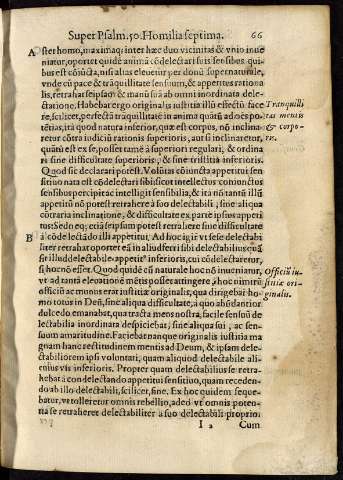 Super Psalm. 50. Homilia septima. 66
A ster homo, maximaq; inter hæc duo vicinitas & vnio inue
niatur, oportet quidē anima cōdelectari suis sensibus quibus
est cōiūcta, nisi alius eleuetur per donū supernaturale,
vnde cū pace & trāquillitate sensuum, & appetitus rationalis,
retrahat seipsam & manū suā ab omni inordinata delectatione.
Habebat ergo originalis iustitia illū effectū face
re, scilicet, perfectā trāquillitatē in anima quātū ad oēs po-
tētias, ita quod natura inferior, quæ est corpus, nō inclina
retur cōtra iudiciū rationis superioris, aut si inclinaretur,
quātū est ex se, posset tamē a superiori regulari, & ordina
ri sine difficultate superioris, & sine tristitia inferioris.
Tranquilli
tas mentis
& corpo-
ris.
Quod sic declarari potest. Volūtas cōiuncta appetitui sen
sitiuo nata est cōdelectari sibi sicut intellectus coniunctus
sensibus percipit ac intelligit sensibilia, & ita nō tantū illū
appetitū nō potest retrahere à suo delectabili, sine aliqua
cōtraria inclinatione, & difficultate ex parte ipsius appeti
tus: sed eq; etiā seipsam potest retrahere sine difficultate
B à condelectādo illi appetitui. Ad hoc igitur vt sese delectabi
liter retrahat oportet eā in aliud ferri sibi delectabilius quā
sit illud delectabile appetitui inferioris, cui cōdelectaretur,
si hoc nō esset. Quod quidē cū naturale hoc nō inueniatur,
vt ad tantā eleuationē mētis posset attingere, à hoc nimirū
officiū ac munus erat iustitiæ originalis, qua dirigebat ho-
mo totus in Deū, sine aliqua difficultate, à quo abūdantior
dulcedo emanabat, qua tracta mens nostra, facile sensuū de
lectabilia inordinata despiciebat, sine aliqua sui, ac sen-
suum amaritudine. Faciebat nanque originalis iustitia ma
gnam hanc rectitudinem mentis ad Deum, & ipsam dele-
ctabiliorem ipsi voluntati, quam aliquod delectabile ali-
cuius vis inferioris. Propter quam delectabilius se retra-
hebat à condelectando appetitui sensitiuo, quam recedendo
ab illo delectabili, scilicet, fine. Ex hoc quidem seque-
batur, vt tolleretur omnis rebellio, adeo vt omnis poten-
tia se retraheret delectabiliter à suo delectabili proprio.
Officiū iu-
stitiæ ori-
ginalis.
I 2 Cum